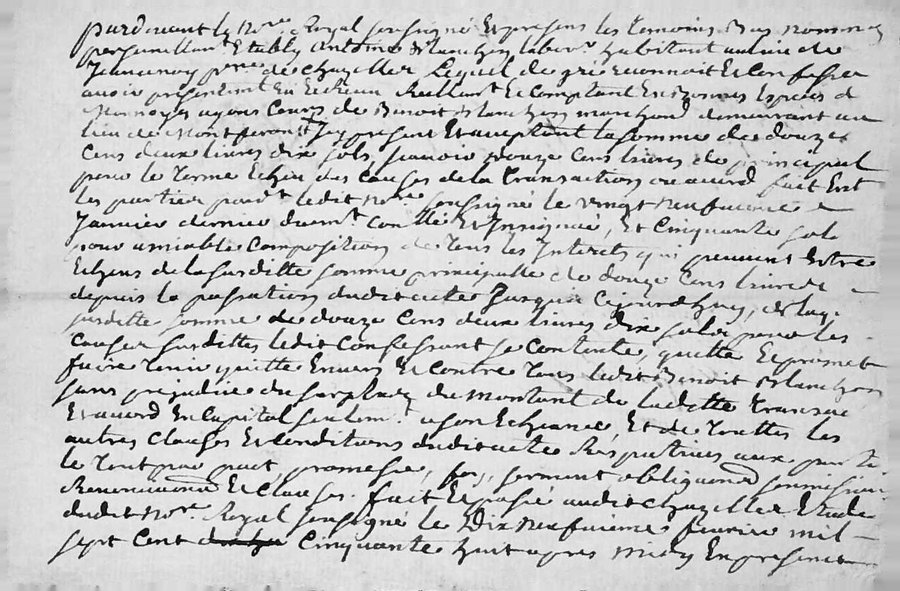 pardevant le No.re Royal soussigné Et presens les temoins Bas nommes
personellem.t Etably Antoine Blanchon labor.r habitant au lieu de
p.sse de Chazelles Lequel de gré Reconnoit Et Confesse
avoir presentem.t Eu Et Receu Reellem.t Et Comptant En Bonnes Especes de
Monnoyes ayens Cours de Benoit Blanchon marchand demeurant au
lieu de Montferon Icy present Et acceptant la somme de douze
Cens deux livres dix sols, scavoir douze Cens livres de principal
pour le terme Echeu des Causes de la transaction ou accord fait Entre
les parties pard.t ledit No.re soussigné le vingt neufvieme
Janvier dernier duem.t Conllé Et Insignué, Et Cinquante sols
pour amiable Composition de tous les Interets qui peuvent Estre
Echeus de la susditte somme principalle de douze Cens livres
depuis la passation dudit acte Jusqua Cejourdhuy, de laq.
susditte somme de douze Cens deux livres dix sols pour les
Causes susdittes ledit Confessant se Contente, quitte Et promet
faire tenir quitte Envers Et Contre tous ledit Benoit Blanchon
sans prejudice du surplus du montant de ladette transac
Et accord En Capital seulem.t a son Echeance, Et de toutes les
autres Clauses Et Conditions dudit acte Respectives aux parties
le tout par pact, promesse, foy, serment obligeons soumissions
Renonciaons Et Clauses. fait Et passé audit Chazelles Etude
dudit No.re Royal soussigné le Dix neufvieme fevrier mil
sept Cent Cinquante huit apres midy En presence